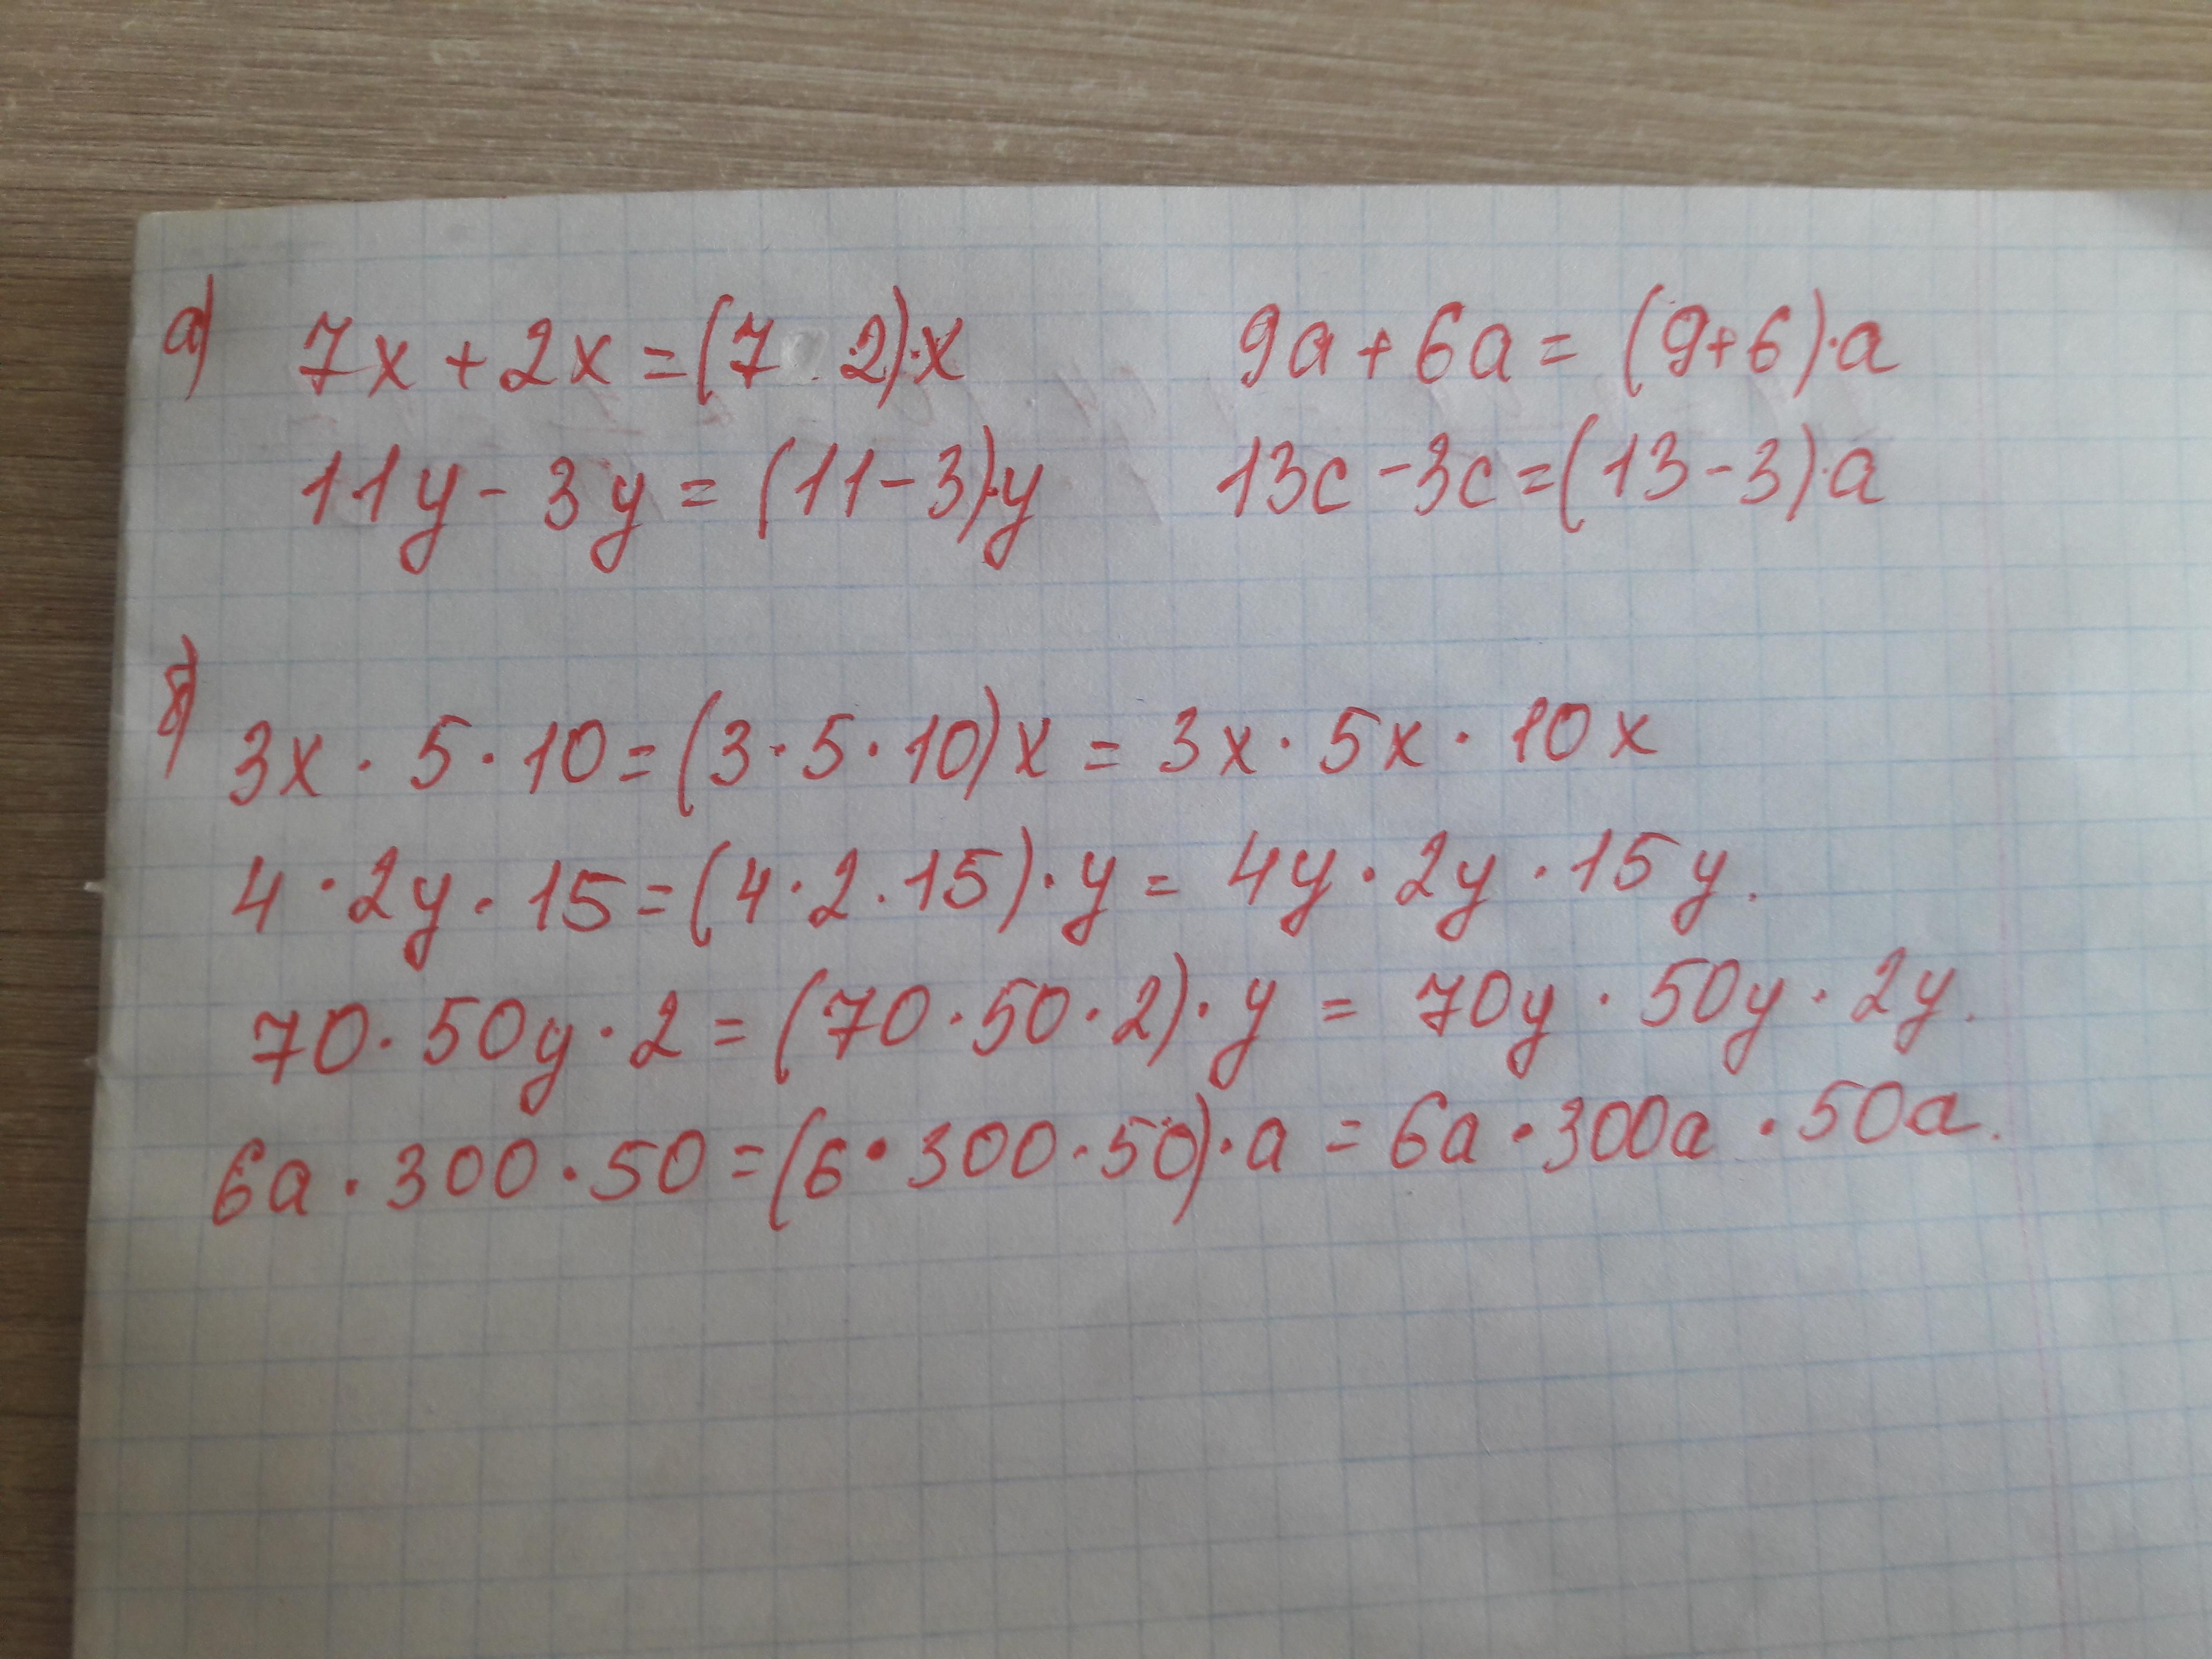 а) 7x + 2x = (7 . 2)·x 9a + 6a = (9+6)·a
11y - 3y = (11-3)·y 13c - 3c = (13-3)·a
б)
3x · 5 · 10 = (3 · 5 · 10)x = 3x · 5x · 10x
4 · 2y · 15 = (4 · 2 · 15) · y = 4y · 2y · 15y.
70 · 50y · 2 = (70 · 50 · 2) · y = 70y · 50y · 2y.
6a · 300 · 50 = (6 · 300 · 50) · a = 6a · 300a · 50a.